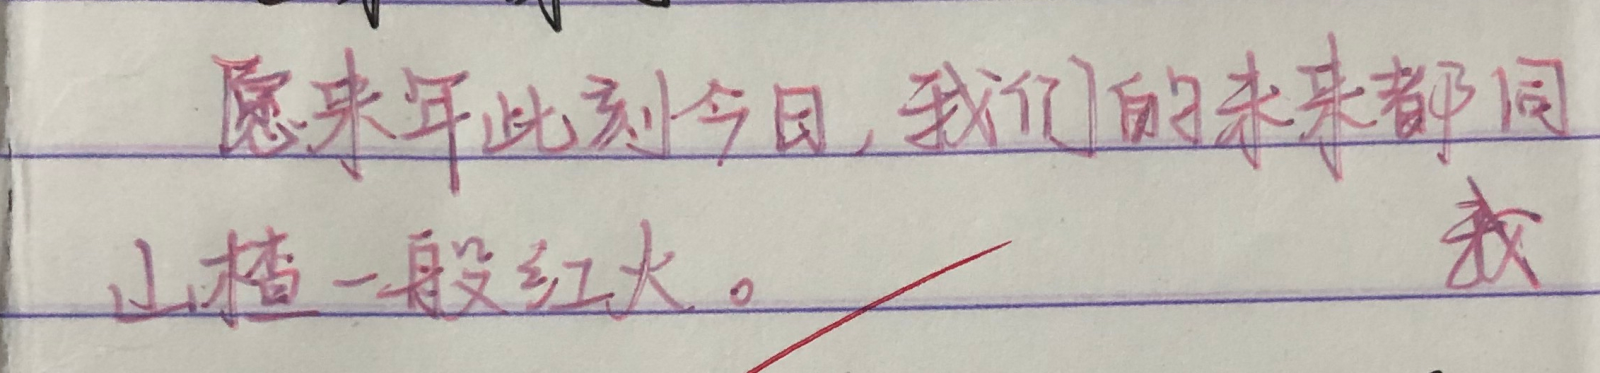 愿来年此刻今日，我们的未来都同
山楂一般红火。
我